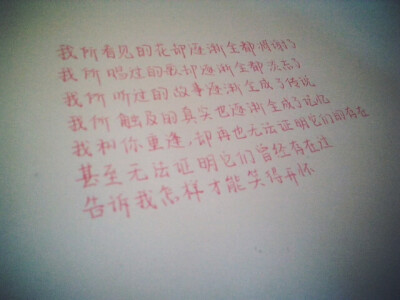 我所看见的花却逐渐全都凋谢了
我所唱过的歌却逐渐全都忘了
我所听过的故事逐渐全成了传说
我所触及的真实也逐渐全成了记忆
我和你重逢,却再也无法证明它们的存在
甚至无法证明它们曾经存在过
告诉我怎样才能笑得开怀